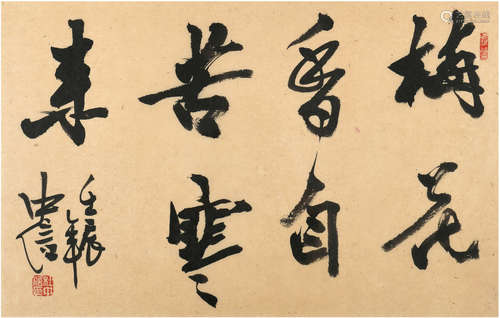 梅花
香自
苦寒
来
壬辰年
忠信